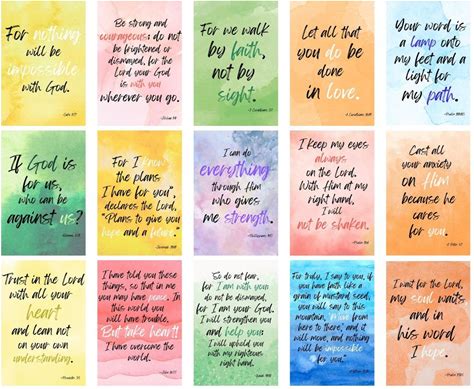 For nothing
will be
impossible
with God.
Luke 1:37
Be strong and
courageous; do not
be frightened or
dismayed, for the
Lord your God
is with you
wherever you go.
Joshua 1:9
For we walk
by faith,
not by
sight.
2 Corinthians 5:7
Let all that
you do be
done
in love.
1 Corinthians 16:14
Your word is
a lamp onto
my feet and a
light for
my path.
Psalm 119:105
If God is
for us,
who can be
against us?
Romans 8:31
For I know
the plans
I have for you",
declares the Lord,
"Plans to give you
hope and a future.
Jeremiah 29:11
I can do
everything
through Him
who gives
me strength.
Philippians 4:13
I keep my eyes
always
on the Lord.
With Him at my
right hand,
I will
not be shaken.
Psalm 16:8
Cast all
your anxiety
on Him
because he
cares for
you.
1 Peter 5:7
Trust in the Lord
with all your
heart
and lean not
on your own
understanding.
Proverbs 3:5
I have told you these
things, so that in me
you may have peace. In
this world you
will have trouble,
But take heart!
I have overcome the
world.
John 16:33
So do not fear,
for I am with you
do not be dismayed,
for I am your God.
I will strengthen
you and help you;
I will uphold you
with my righteous
right hand.
Isaiah 41:10
For truly, I say to you, if
you have faith like a grain
of mustard seed,
you will say to this
mountain, move from
here to there," and it
will move, and nothing
will be
impossible to you.
I wait for the Lord,
my soul waits
and in
his word I
hope.
Psalm 130:5